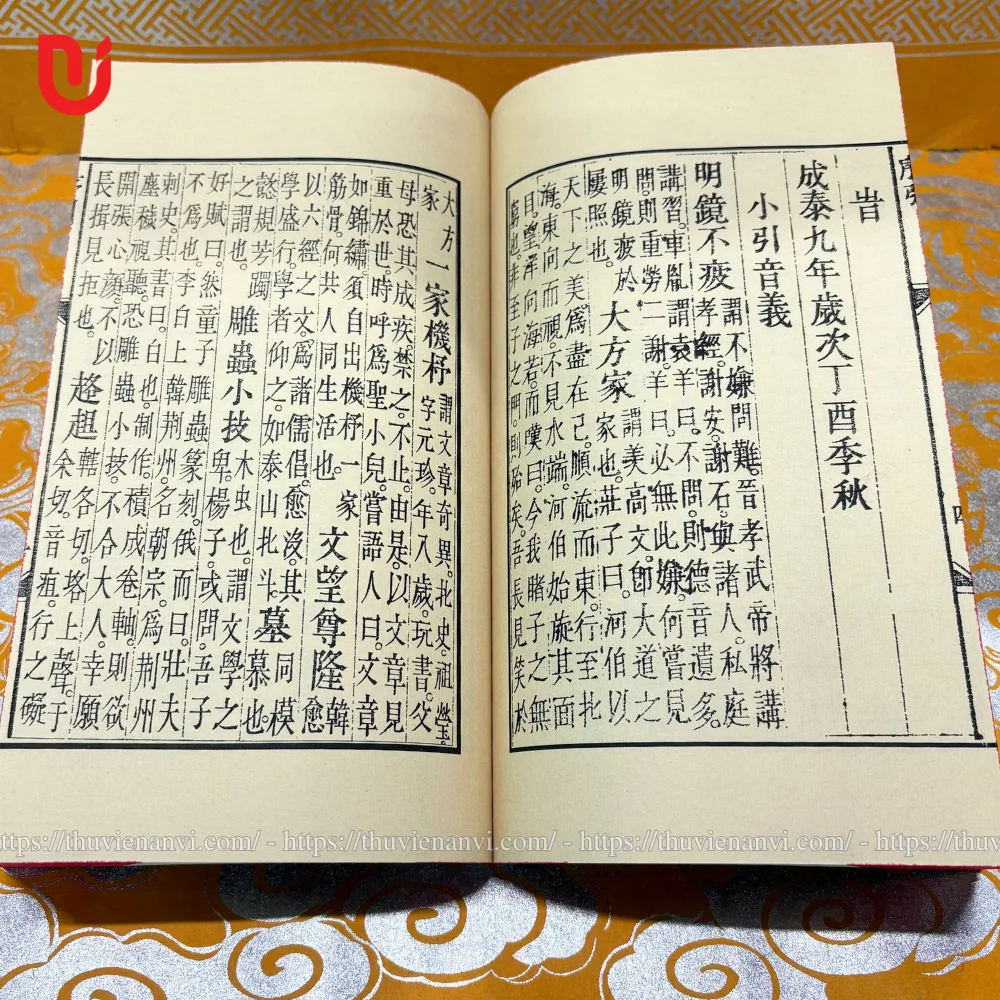 旹
成泰九年歲次丁酉季秋
小引音義
明鏡不疲
謂不嫌問難。晉孝武帝將講
孝經。謝安。謝石與諸人。私庭
講習。車胤謂袁羊曰。不問。則德音遺多。
問。則重勞二謝。羊曰。必無此嫌。何嘗見
明鏡疲於
屢照也。
大方家
謂美高文。師大道之
家也。莊子曰。河伯以
天下之美爲盡在己。順流而東。行至北
海。東向而視。不見水端。河伯始旋其面
目。望洋向海若。而嘆曰。今我睹子之無
窮也。非至子之門。則殆矣。吾長見笑於
大方
家
一家機杼
謂文章奇異。北史。祖瑩。
字元珍。年八歲。玩書。父
母恐其成疾禁之。不止。由是。以文章見
重於世。時呼爲聖小兒。嘗語人曰。文章
如錦繡。須自出機杼一家
筋骨。何共人同生活也。
文望尊隆
韓
愈
以六經之文。爲諸儒倡。愈沒。其
學盛行。學者仰之。如泰山北斗。
墓
同模
慕也
規芳躅
之謂也。
雕蟲小技
木虫也。謂文學之
卑。楊子。或問。吾子
好賦。曰。然。童子雕蟲篆刻。俄而曰。壯夫
不爲也。李白上韓荊州。名朝宗。爲荊州
刺史。其書曰。白也。制作。積成卷軸。則欲
塵穢視聽。恐雕蟲小技。不合大人。幸願
開張心顏。不以
長揖見拒也。
趦趄
各切。上聲。于
余切。音疽。行之礙
四
https://thuvienanvi.com/ - https://thuvienanvi.com/ - https://thuvienanvi.com/